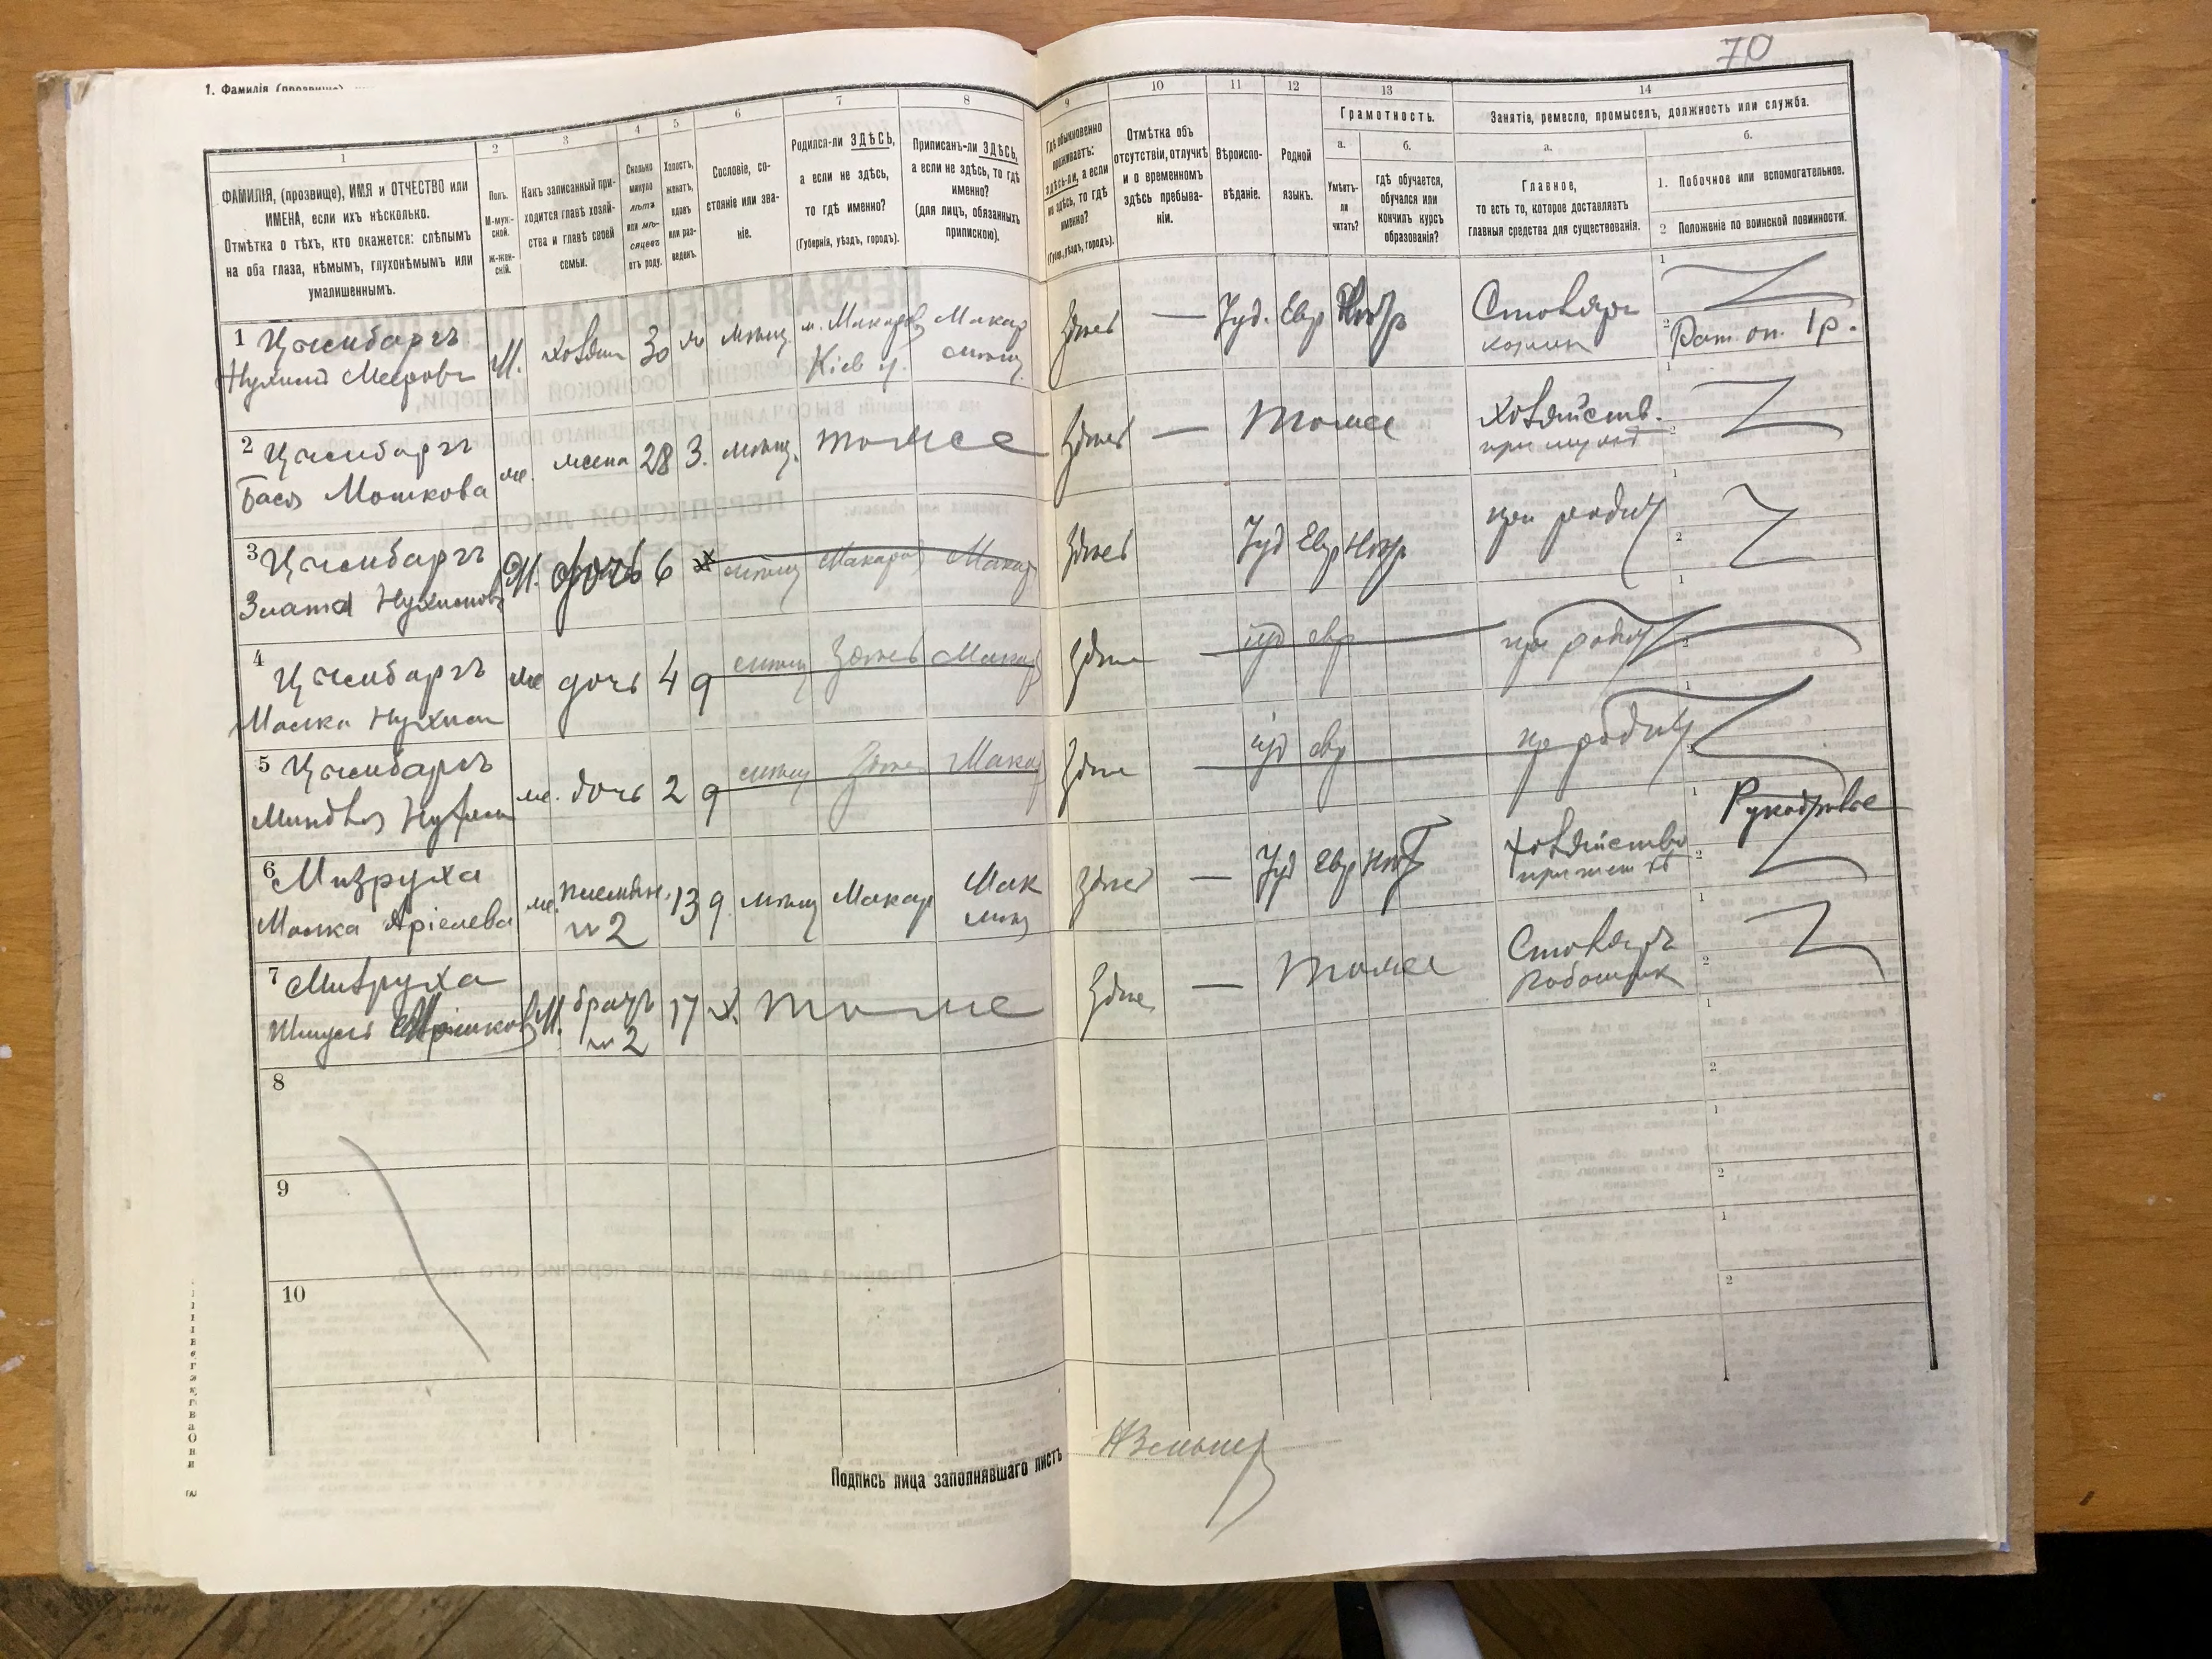 70
1. Фамилія (прозвище)
1
2
3
4
5
6
7
8
9
10
11
12
13
14
ФАМИЛІЯ, (прозвище), ИМЯ и ОТЧЕСТВО или
ИМЕНА, если ихъ нѣсколько.
Отмѣтка о тѣхъ, кто окажется: слѣпымъ
на оба глаза, нѣмымъ, глухонѣмымъ или
умалишеннымъ.
Полъ.
М-муж-
ской.
Ж-жен-
скій.
Какъ записанный при-
ходится главѣ хозяй-
ства и главѣ своей
семьи.
Сколько
минуло
лѣтъ
или мѣ-
сяцевъ
отъ роду.
Холостъ,
женатъ,
вдовъ
или раз-
веденъ.
Сословіе, со-
стояніе или зва-
ніе.
Родился-ли ЗДѢСЬ,
а если не здѣсь,
то гдѣ именно?
(Губернія, уѣздъ, городъ).
Приписанъ-ли ЗДѢСЬ,
а если не здѣсь, то гдѣ
именно?
(для лицъ, обязанныхъ
припискою).
Гдѣ обыкновенно
проживаетъ:
здѣсь-ли, а если
не здѣсь, то гдѣ
именно?
(Губер., уѣздъ, городъ).
Отмѣтка объ
отсутствіи, отлучкѣ
и о временномъ
здѣсь пребыва-
ніи.
Вѣроиспо-
вѣданіе.
Родной
языкъ.
Грамотность.
а.
Умѣетъ-
ли
читать?
б.
Гдѣ обучается,
обучался или
кончилъ курсъ
образованія?
Занятіе, ремесло, промыселъ, должность или служба.
а.
Главное,
то есть то, которое доставляетъ
главныя средства для существованія.
б.
1. Побочное или вспомогательное.
2 Положеніе по воинской повинности.
1 Цимбаргъ
Нухимъ Мееровъ
М. хозяин 30 мѣщ. м. Макаров Макар
Кіев у. мѣщ
здѣсь — Іуд. Евр Столяръ
Рат. оп. 1 р.
2 Цимбаргъ
Бася Мошкова
же. жена 28 З. мѣщ. тоже
здѣсь — тоже хозяйств.
3 Цимбаргъ
Злата Нухимов
дочь 6 мѣщ Макаров Макар
здѣсь Іуд Евр при родит
4 Цимбаргъ
Малка Нухим
же дочь 4 д мѣщ здѣсь Макар
здѣсь іуд евр при родит
5 Цимбаргъ
же. дочь 2 д мѣщ здѣсь Макар
здѣсь іуд евр пр родит
6 Мизруха
Малка Аріелева
же. племян. 13 д. мѣщ Макар Мак
№ 2 мѣщ
здѣсь — Іуд Евр хозяйство
7 Мизруха
Шмуль
М. братъ 17 х. тоже
№ 2
здѣсь — тоже Столяръ
работник
8
9
10
Подпись лица заполнявшаго листъ